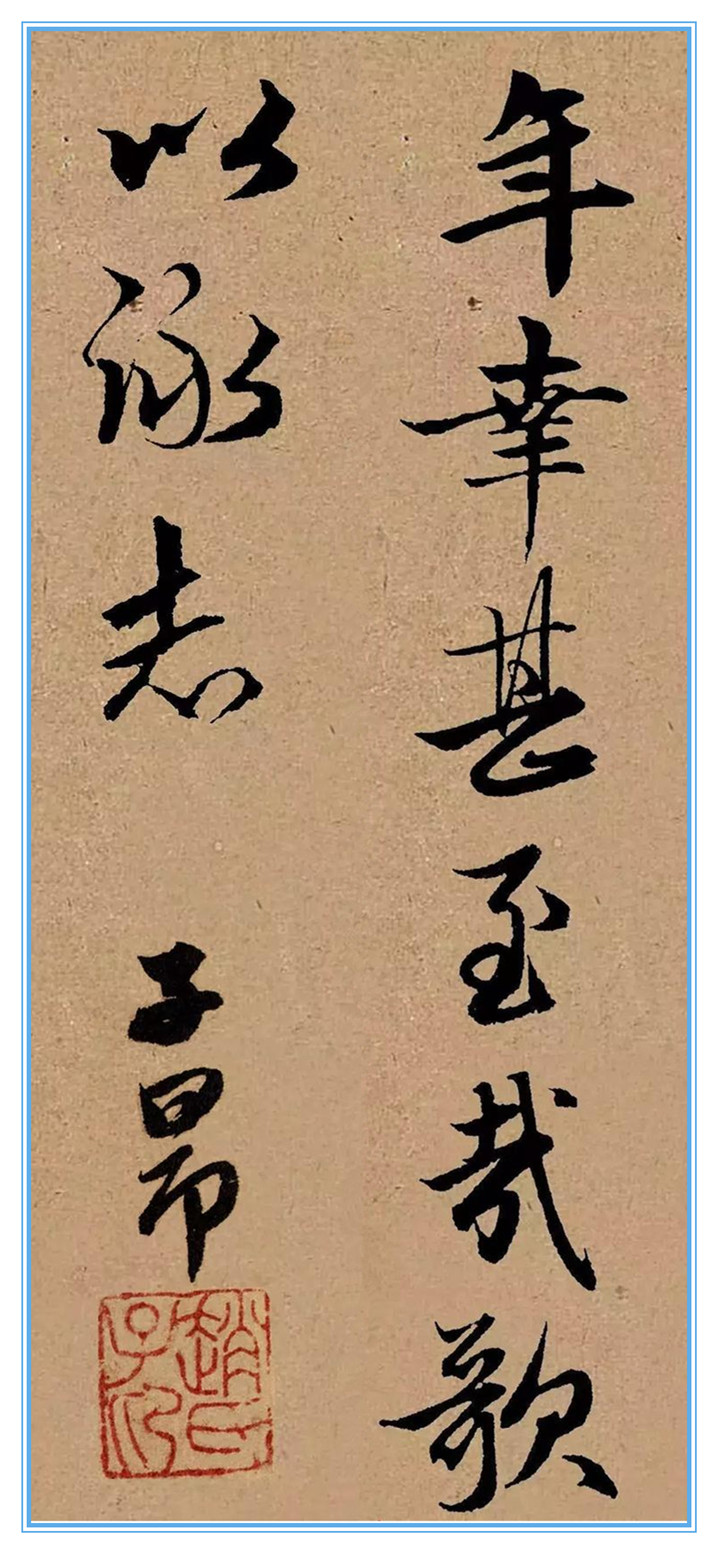 年幸甚至哉歌
以詠志
子昂
趙氏子昂